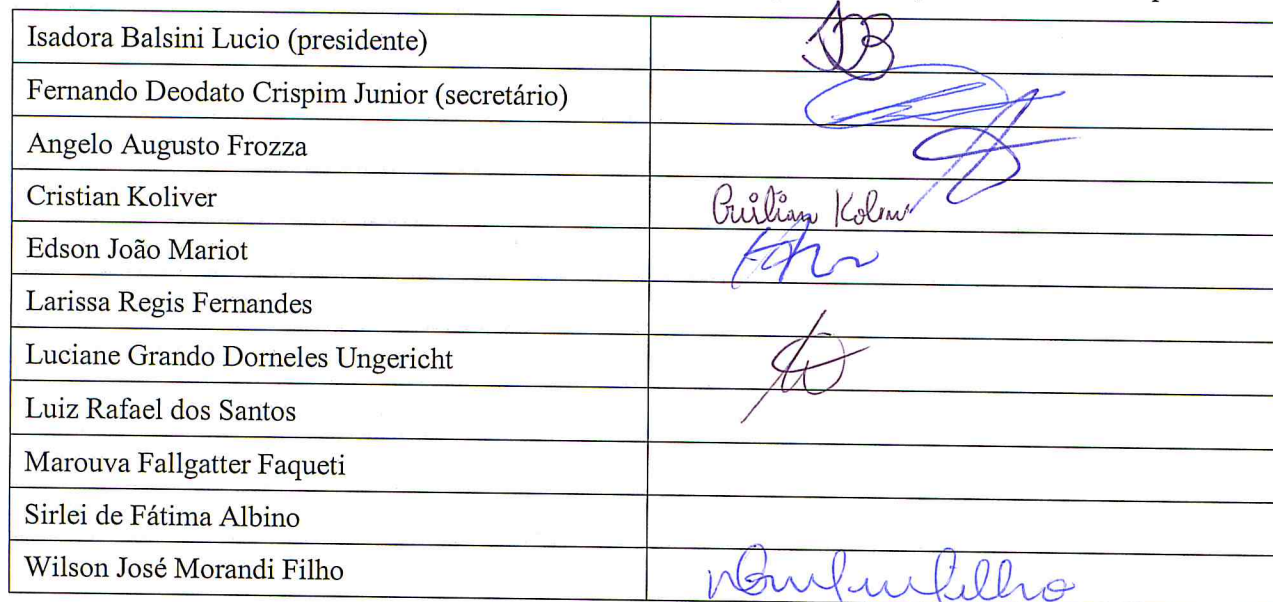 Isadora Balsini Lucio (presidente)
Fernando Deodato Crispim Junior (secretário)
Angelo Augusto Frozza
Cristian Koliver
Edson João Mariot
Larissa Regis Fernandes
Luciane Grando Dorneles Ungericht
Luiz Rafael dos Santos
Marouva Fallgatter Faqueti
Sirlei de Fátima Albino
Wilson José Morandi Filho